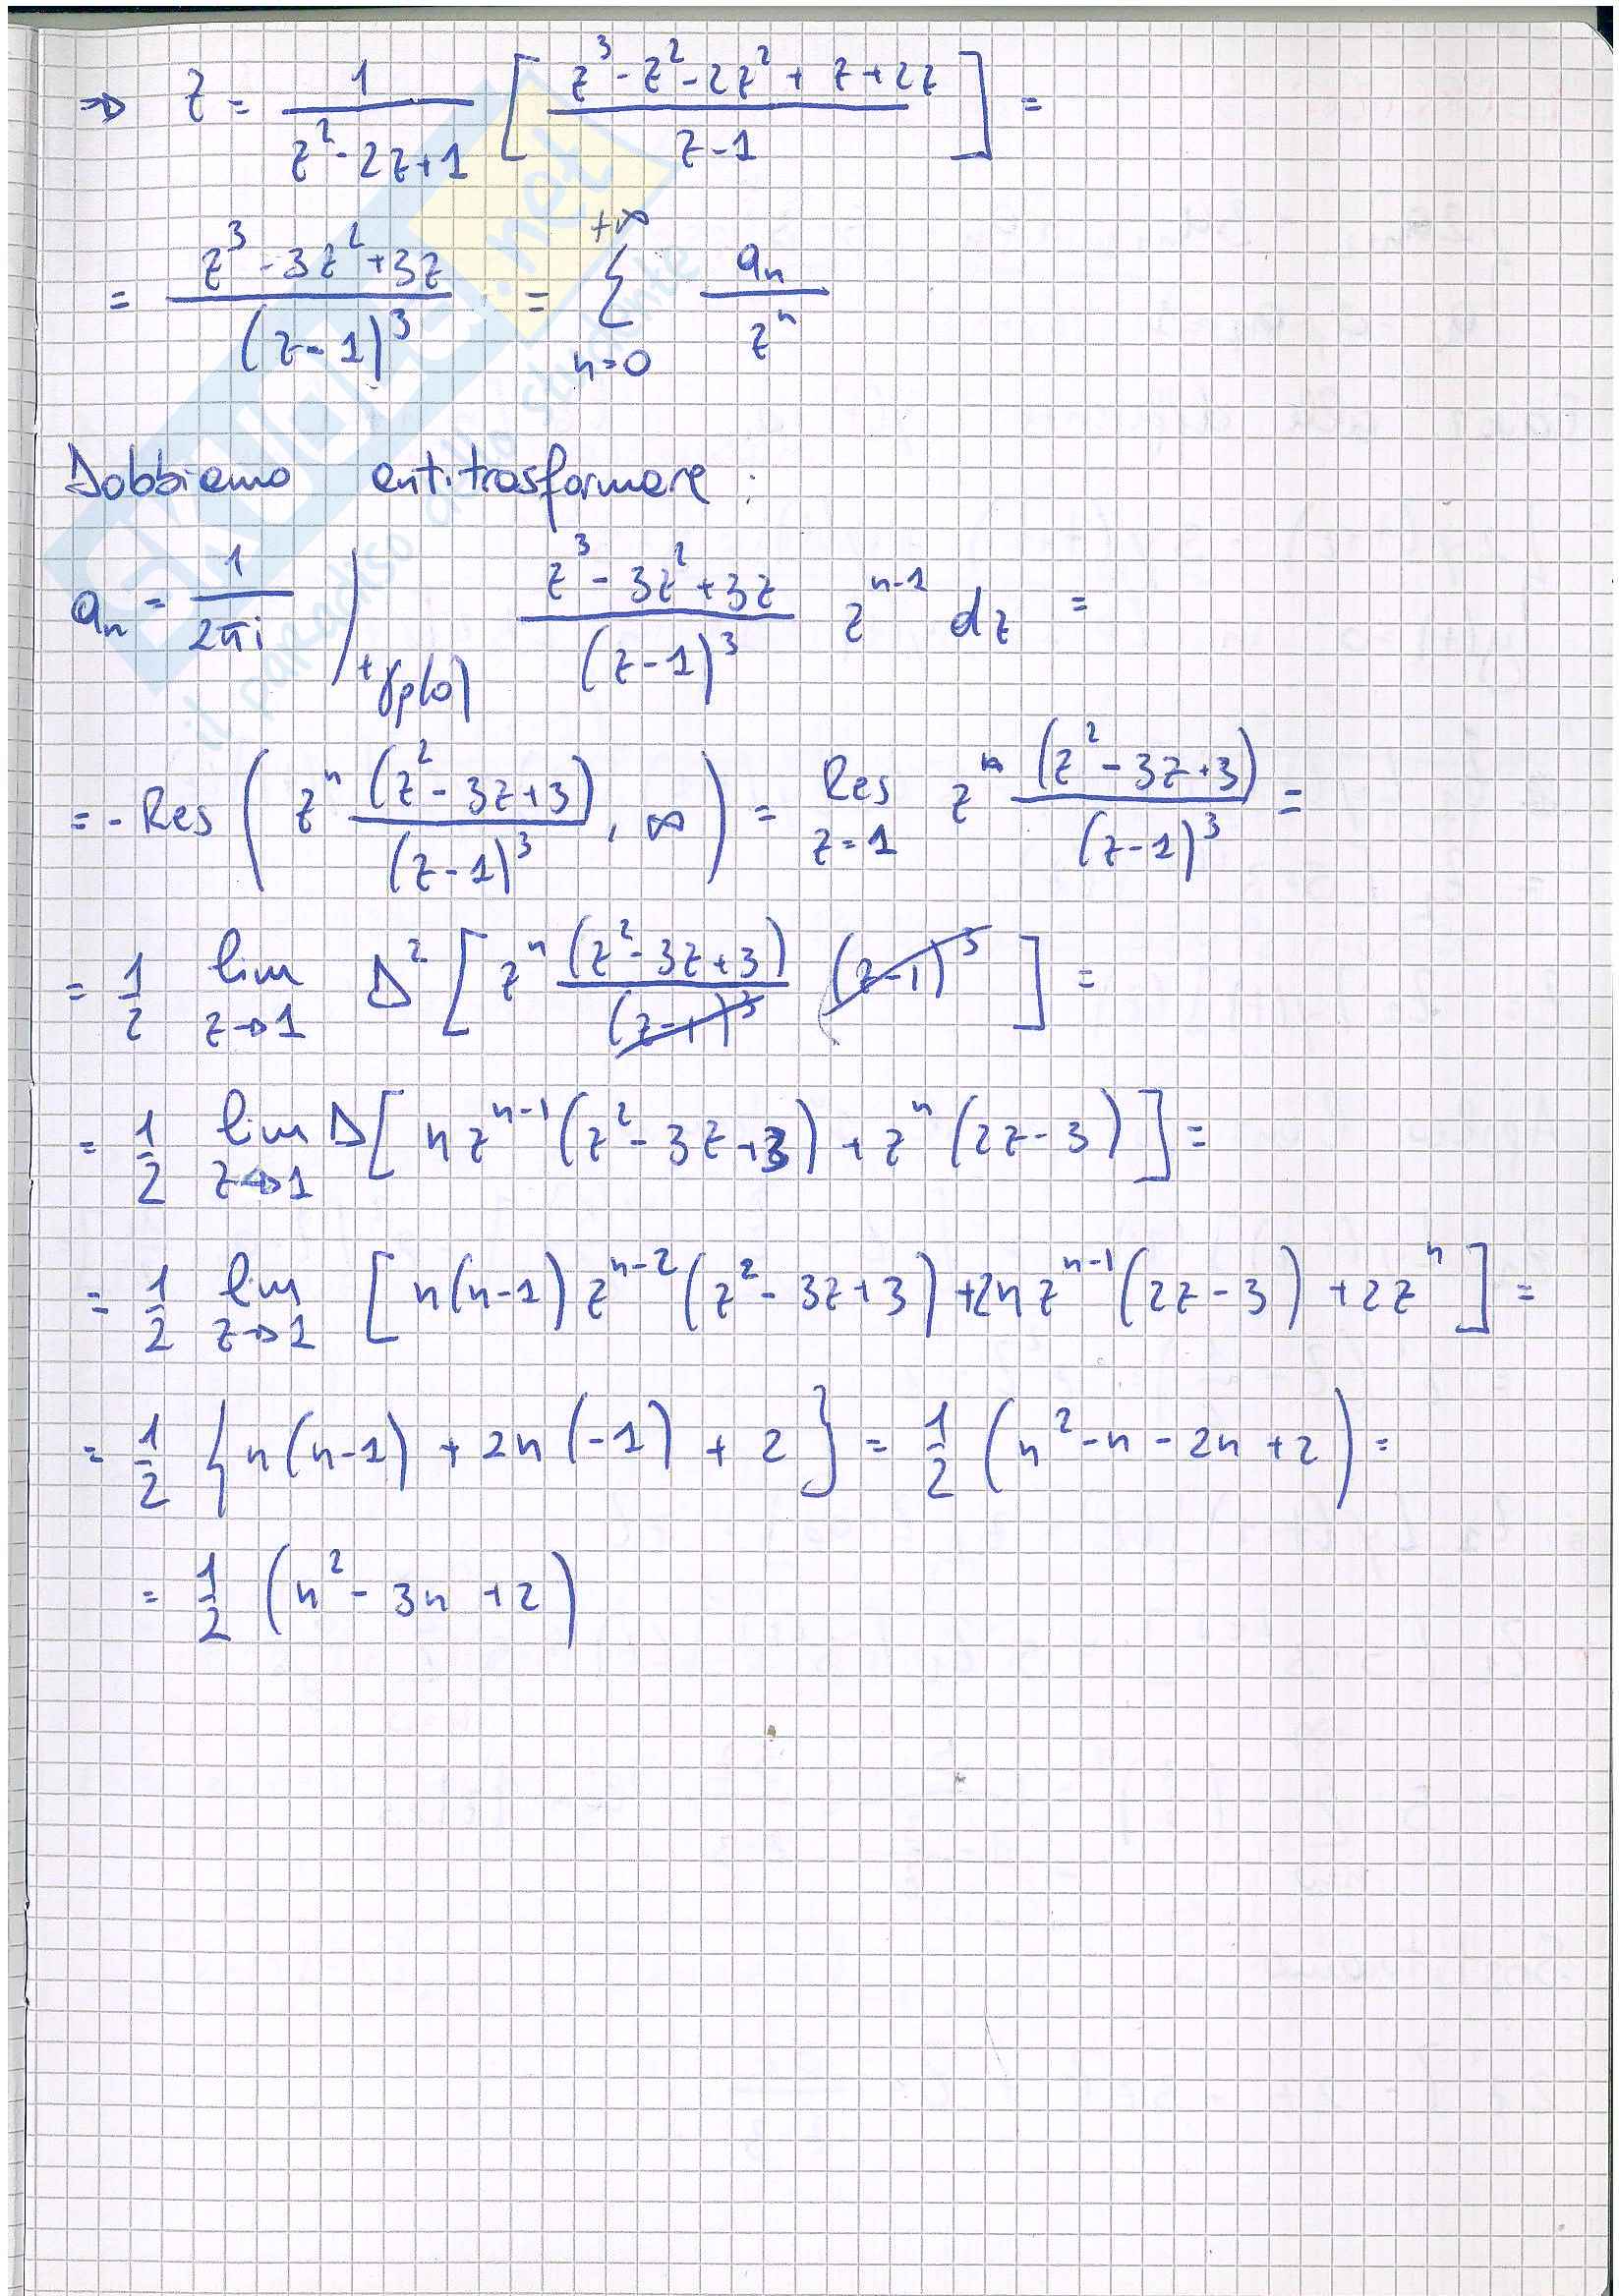 ⇒ Z = 1/(z²-2z+1) [ (z³-z²-2z²+z+2z)/(z-1) ] =
= (z³-3z²+3z)/(z-1)³ = Σ_{n=0}^{+∞} aₙ/zⁿ
Dobbiamo antitrasformare :
aₙ = 1/(2πi) ∫_{+γρ(0)} (z³-3z²+3z)/(z-1)³ z^{n-1} dz =
= - Res ( zⁿ (z²-3z+3)/(z-1)³ , ∞ ) = Res_{z=1} zⁿ (z²-3z+3)/(z-1)³ =
= 1/2 lim_{z→1} D² [ zⁿ (z²-3z+3)/(z-1)³ (z-1)³ ] =
= 1/2 lim_{z→1} D [ n z^{n-1} (z²-3z+3) + zⁿ (2z-3) ] =
= 1/2 lim_{z→1} [ n(n-1) z^{n-2} (z²-3z+3) + 2n z^{n-1} (2z-3) + 2zⁿ ] =
= 1/2 { n(n-1) + 2n(-1) + 2 } = 1/2 (n²-n-2n+2) =
= 1/2 (n²-3n+2)
il paradiso dello studente
.net